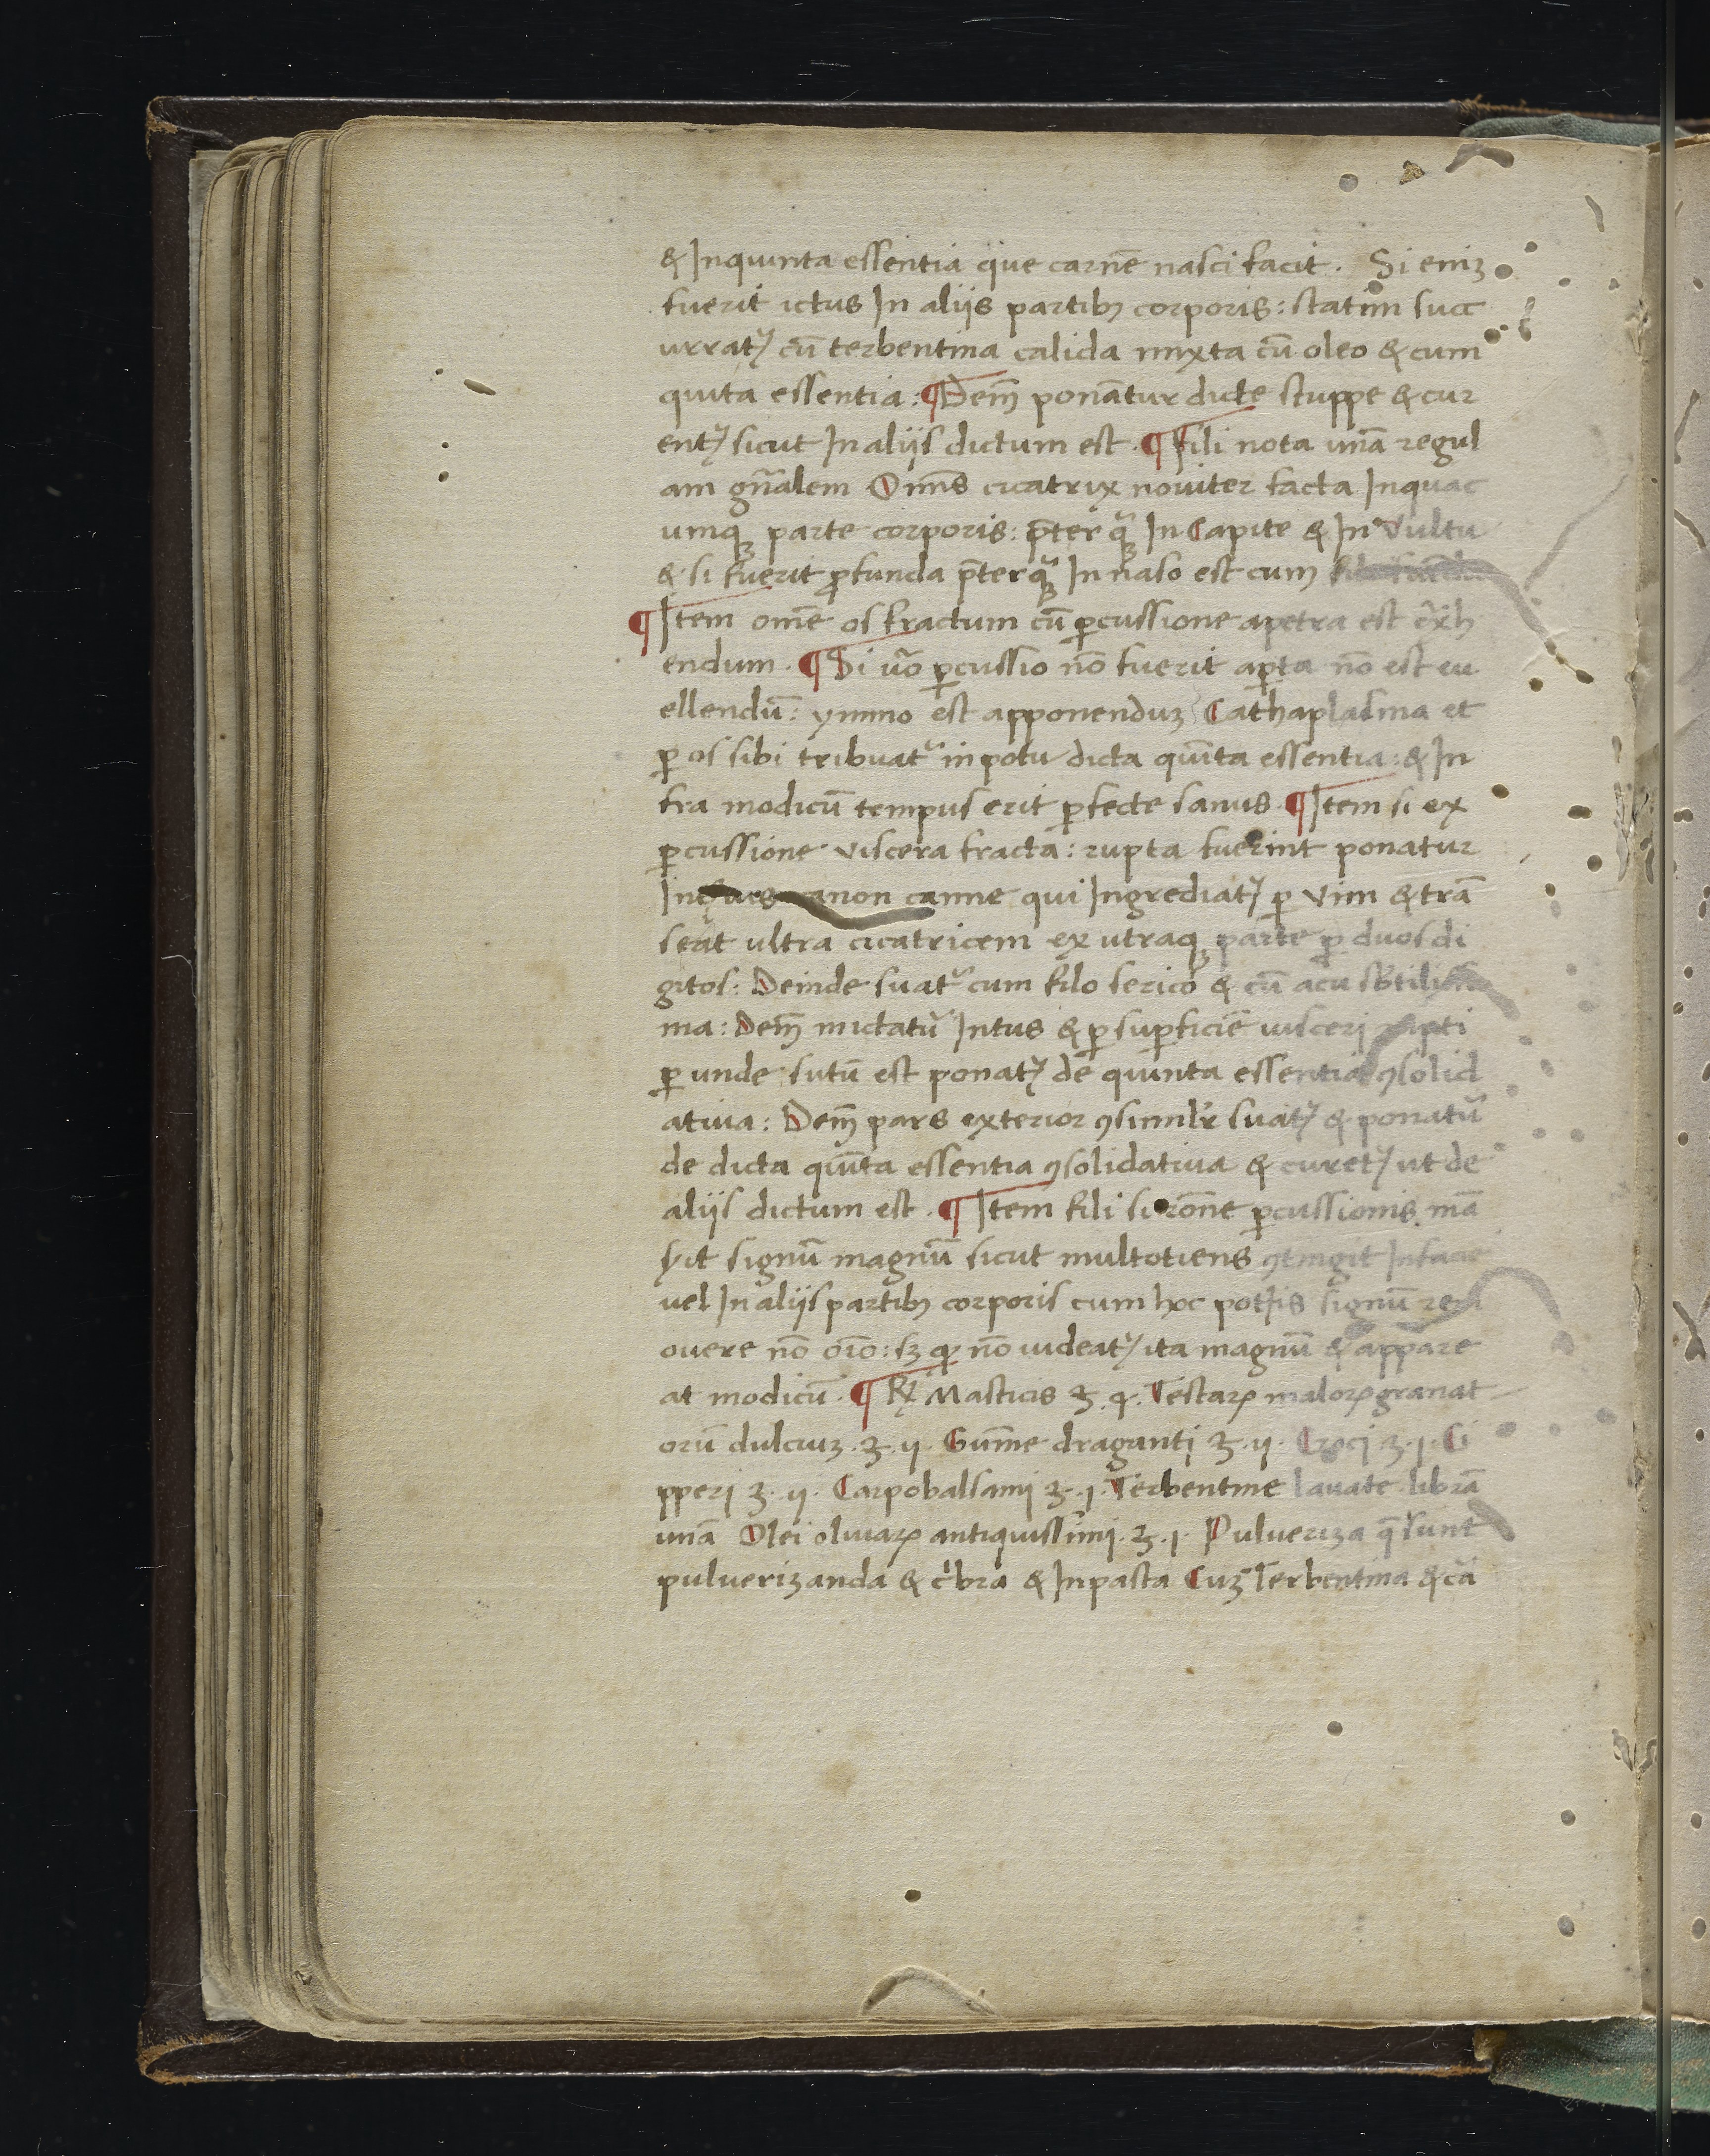 & Inquinta essentia que carnē nasci facit. Si eniꝫ
fuerit ictus In aliis partibꝫ corporis: statim succ
urratꝭ cū terbentina calida mixta cū oleo & cum
quīta essentia: ¶ Dem̄ ponātur dicte stuppe & cur
entꝭ sicut In aliis dictum est. ¶ Fili nota unā regul
am gn̄alem Omīs cicatrix noviter facta Inquac
umqꝫ parte corporis: p̄terqꝫ In Capite & In vultu
& si fuerit ꝓfunda p̄terqꝫ In naso est cum
¶ Item omē os fractum cū ꝑcussione apetra est ex̄h
endum. ¶ Si vō ꝑcussio nō fuerit aꝑta nō est eu
ellendū: ymmo est apponenduꝫ Cathaplasma et
ꝑ os sibi tribuatᷣ in potu dicta quīta essentia: & In
fra modicū tempus erit ꝑfecte sanus. ¶ Item si ex
ꝑcussione viscera fracta: rupta fuerint ponatur
canne qui Ingrediatꝭ ꝑ vim & trā
seāt ultra cicatricem ex utraqꝫ parte ꝑ duos di
gitos: Deinde suatᷣ cum filo serico & cū acu sb̄tilissi
ma: Dem̄ mictatᷣ Intus & ꝑ suꝑficiē visceri rupti
ꝑ unde sutū est ponatꝭ de quinta essentia ꝯsolid
ativa: Dem̄ pars exterior ꝯsimilr̄ suatꝭ & ponatᷣ
de dicta quīta essentia ꝯsolidativa & curetꝭ ut de
aliis dictum est. ¶ Item fili si rōne ꝑcussionis mā
sit signū magnū sicut multotiens ꝯtingit Infacie
vel In aliis partibꝫ corporis cum hoc potis signū rem
overe nō oīo: sꝫ qꝫ nō videatꝭ ita magnū & appare
at modicū. ¶ ℞ Masticis ʒ. . Testaꝝ maloꝝ granat
orū dulciuꝫ. ʒ. ij. Gum̄e draganti ʒ. ij. Croci ʒ. j. Ci
pperi ʒ. ij. Carpobalsami ʒ. j. Terbentine lavate librā
unā Olei olivaꝝ antiquissimi. ʒ. j. Pulveriza q̄ sunt
pulverizanda & c̄bra & Inpasta Cuꝫ Terbentina & cā